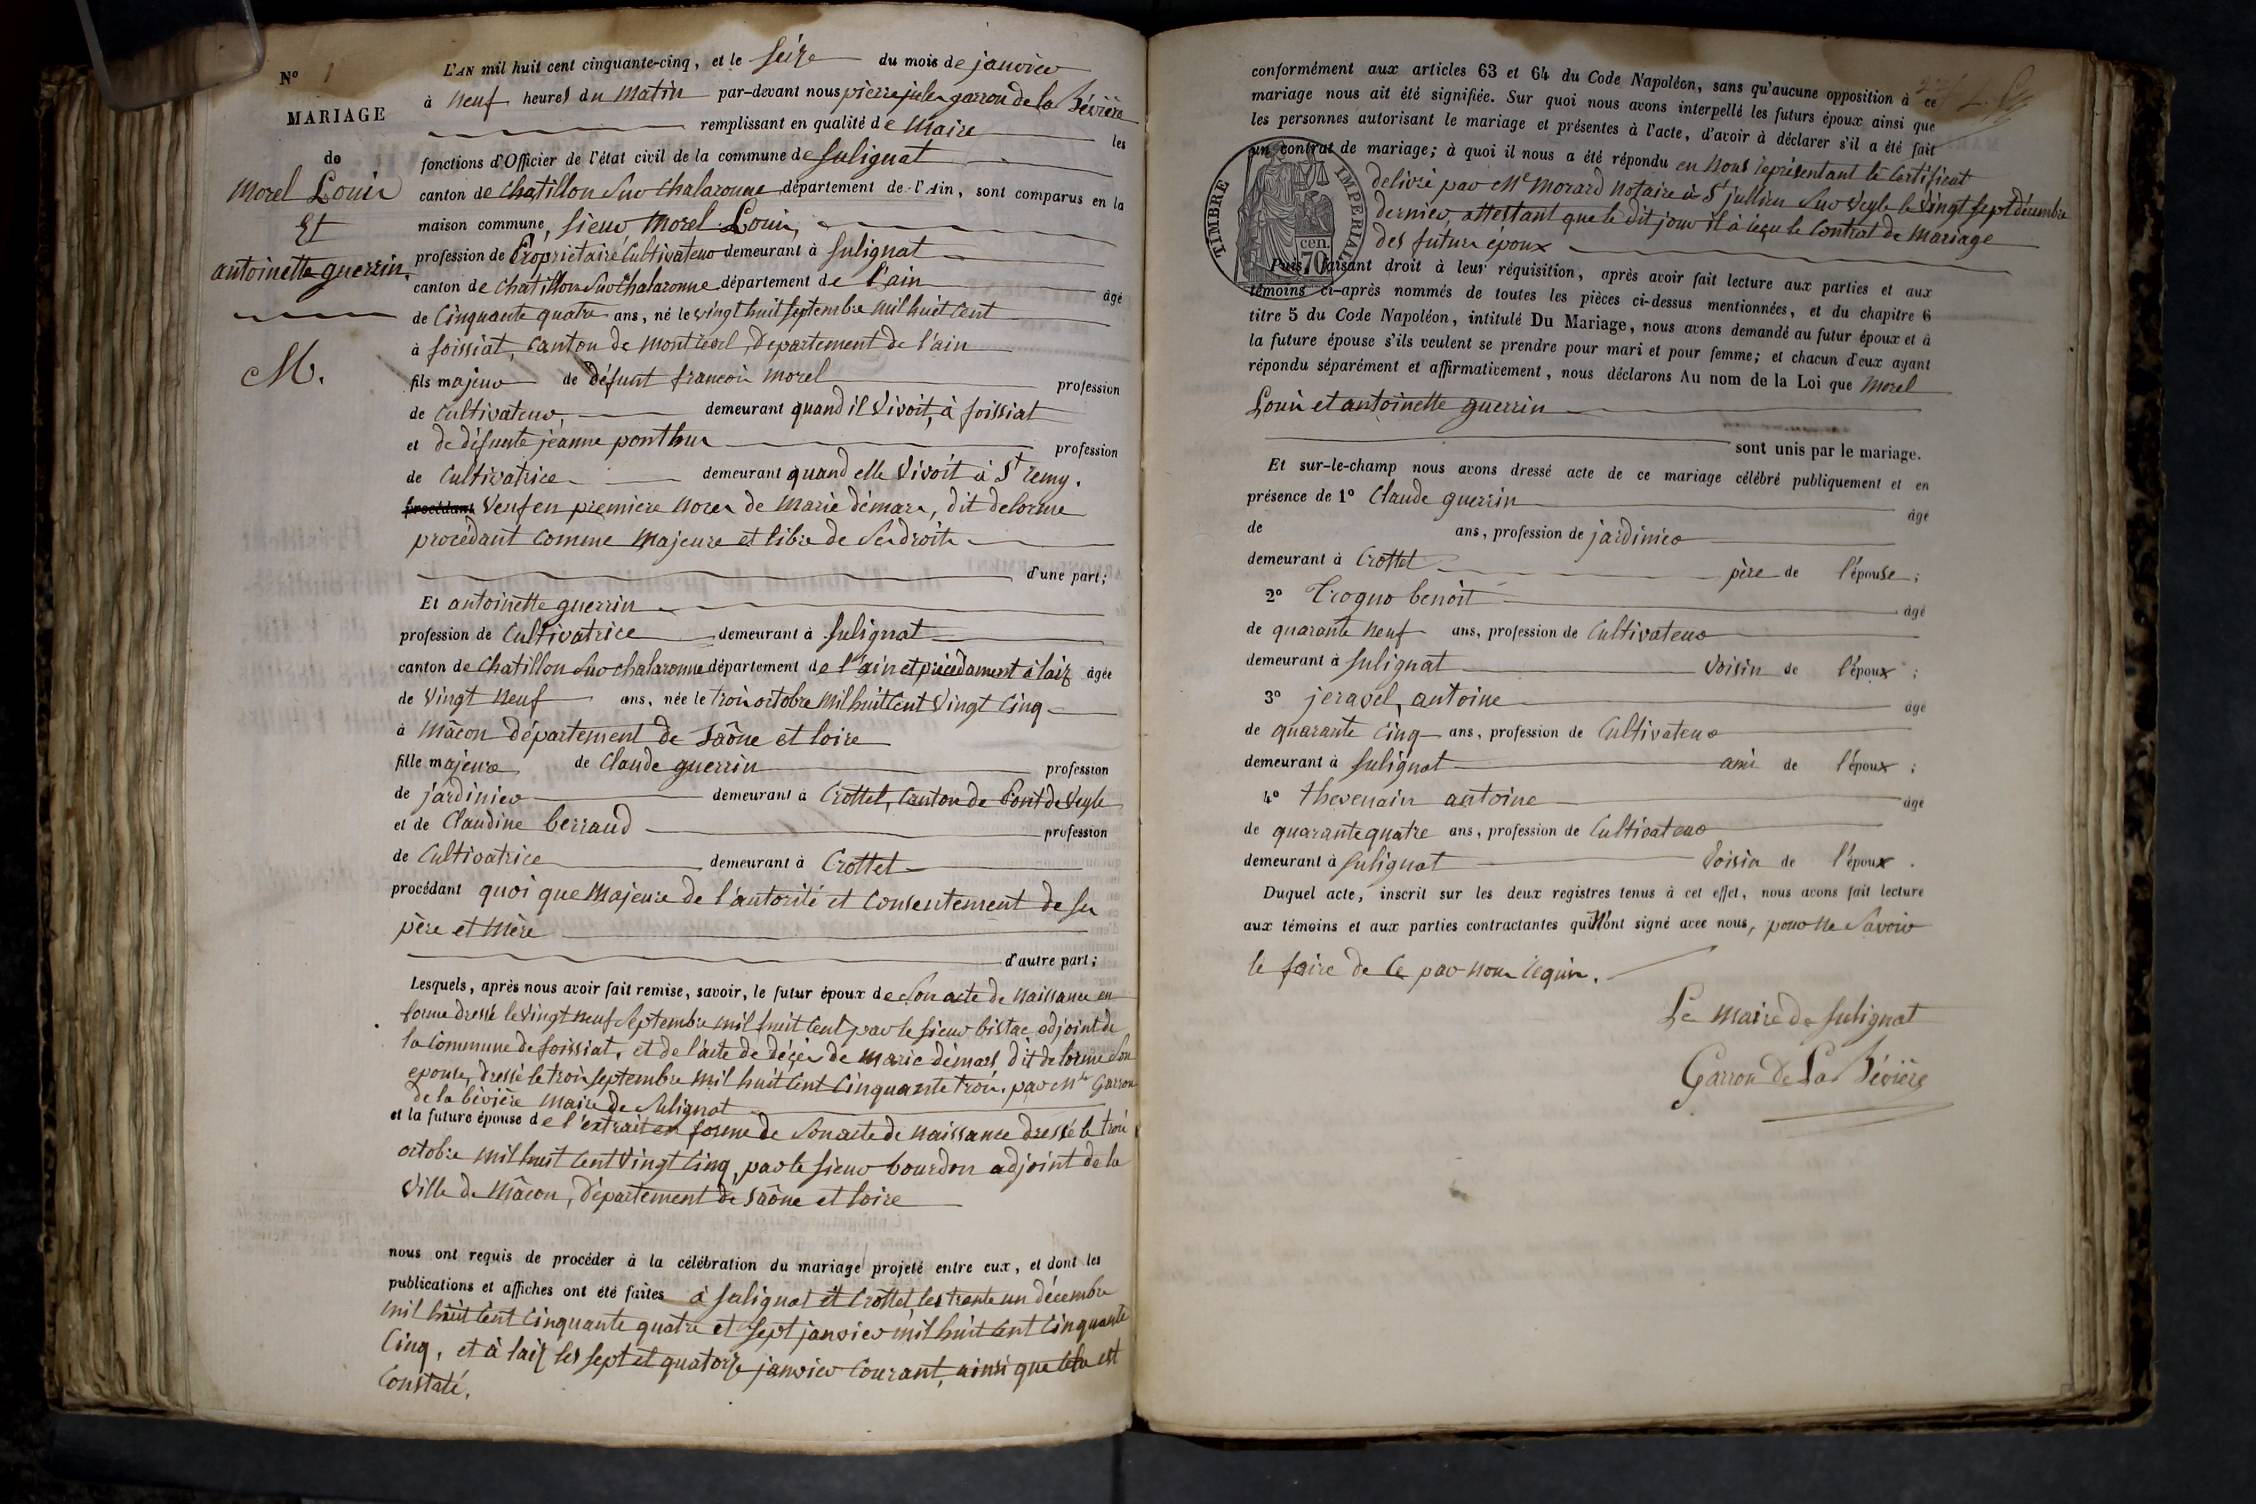 N° 1
MARIAGE
de
Morel Louis
Et
antoinette guerrin.
M.
L'AN mil huit cent cinquante-cinq, et le seize du mois de janvier
à neuf heures du matin par-devant nous pierre jules garron de la Bévière
remplissant en qualité de Maire les
fonctions d'Officier de l'état civil de la commune de Sulignat
canton de Chatillon sur Chalaronne département de l'Ain, sont comparus en la
maison commune, sieur Morel Louis,
profession de Propriétaire Cultivateur demeurant à Sulignat
canton de Chatillon sur Chalaronne département de l'ain âgé
de Cinquante quatre ans, né le vingt huit septembre mil huit Cent
à foissiat, Canton de Montrevel, département de l'ain
fils majeur de défunt francois Morel profession
de Cultivateur, demeurant quand il vivoit, à foissiat
et de défunte jeanne ponthus profession
de Cultivatrice demeurant quand elle vivoit à St remy.
procédant Veuf en première noces de Marie démars, dit delorme
procédant Comme Majeure et libre de ses droits
d'une part;
Et antoinette guerrin
profession de Cultivatrice demeurant à Sulignat
canton de Chatillon sur chalaronne département de l'ain et précédament à laiz âgée
de Vingt neuf ans, née le trois octobre mil huit Cent Vingt Cinq
à Mâcon département de Saône et loire
fille majeure de Claude guerrin profession
de jardinier demeurant à Crottet, Canton de Pont de Veyle
et de Claudine berraud profession
de Cultivatrice demeurant à Crottet
procédant quoi que Majeure de l'autorité et Consentement de ses
père et Mère
d'autre part;
Lesquels, après nous avoir fait remise, savoir, le futur époux de Son acte de Naissance en
forme dressé le vingt neuf Septembre mil huit Cent par le sieur bistac adjoint de
la Commune de foissiat, et de l'acte de décès de Marie démars dit delorme Son
epouse, dressé le trois septembre mil huit Cent Cinquante trois, par Mr Garron
de la bévière Maire de Sulignat
et la future épouse de l'extrait en forme de Son acte de Naissance dressé le trois
octobre mil huit Cent Vingt Cinq, par le sieur bourdon adjoint de la
Ville de Mâcon, département de Saône et loire
nous ont requis de procéder à la célébration du mariage projeté entre eux, et dont les
publications et affiches ont été faites à Sulignat et Crottet, les trente un décembre
mil huit Cent Cinquante quatre et sept janvier mil huit Cent Cinquante
Cinq, et à laiz les sept et quatorze janvier Courant, ainsi que cela est
Constaté.
conformément aux articles 63 et 64 du Code Napoléon, sans qu'aucune opposition à ce
mariage nous ait été signifiée. Sur quoi nous avons interpellé les futurs époux ainsi que
les personnes autorisant le mariage et présentes à l'acte, d'avoir à déclarer s'il a été fait
un contrat de mariage; à quoi il nous a été répondu en Nous représentant le Certificat
delivré par Me Morard Notaire à St jullien Sur Veyle le Vingt sept décembre
dernier, attestant que le dit jour il a reçu le Contrat de Mariage
des futurs époux
TIMBRE IMPERIAL
70 cen.
Puis, faisant droit à leur réquisition, après avoir fait lecture aux parties et aux
témoins ci-après nommés de toutes les pièces ci-dessus mentionnées, et du chapitre 6
titre 5 du Code Napoléon, intitulé Du Mariage, nous avons demandé au futur époux et à
la future épouse s'ils veulent se prendre pour mari et pour femme; et chacun d'eux ayant
répondu séparément et affirmativement, nous déclarons Au nom de la Loi que Morel
Louis et antoinette guerrin
sont unis par le mariage.
Et sur-le-champ nous avons dressé acte de ce mariage célébré publiquement et en
présence de 1° Claude guerrin âgé
de ans, profession de jardinier
demeurant à Crottet père de l'épouse;
2° Trogno benoit âgé
de quarante neuf ans, profession de Cultivateur
demeurant à Sulignat Voisin de l'époux;
3° jeravel, antoine âgé
de quarante Cinq ans, profession de Cultivateur
demeurant à Sulignat ami de l'époux;
4° thevenain antoine âgé
de quarante quatre ans, profession de Cultivateur
demeurant à Sulignat Voisin de l'époux.
Duquel acte, inscrit sur les deux registres tenus à cet effet, nous avons fait lecture
aux témoins et aux parties contractantes qui N'ont signé avec nous, pour ne Savoir
le faire de ce par nous requis.
Le Maire de Sulignat
Garron De La Bévière